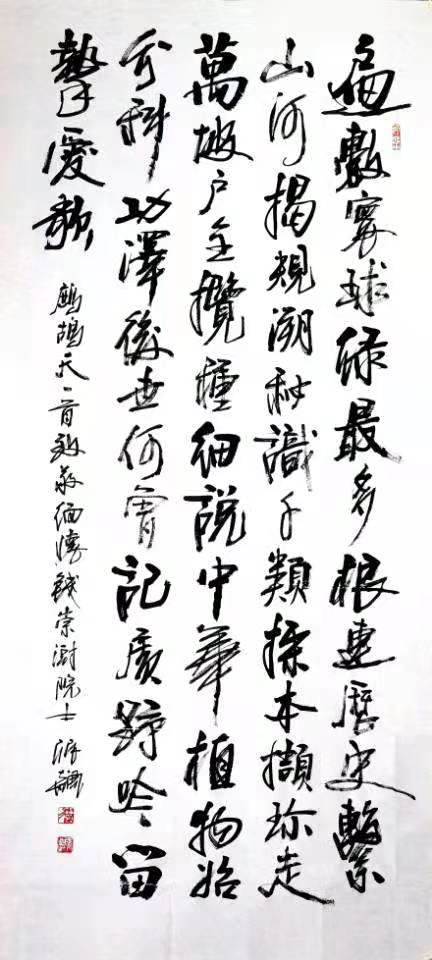 遍數寰球綠最多根連歷史繫
山河揭規溯秘識千類採本擷珍走
萬坡戶全攬種細說中華植物始
分科功澤後世何記廣野吟留
摯愛歌
鷓鴣天一首致敬緬懷錢崇澍院士